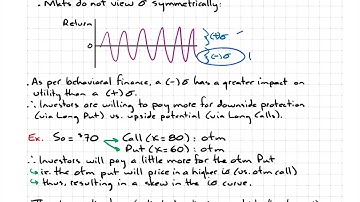 . Mkts do not view σ symmetrically:
Return
(+)σ
0
(-)σ
. As per behavioral finance, a (-)σ has a greater impact on
utility than a (+)σ.
∴ Investors are willing to pay more for downside protection
(via Long Puts) vs. upside potential (via Long Calls).
Ex. S₀ = $70 → Call (X=80) : otm
→ Put (X=60) : otm
∴ Investors will pay a little more for the otm Put
↳ i.e. the otm put will price in a higher iσ (vs. otm call)
↳ thus, resulting in a skew in the iσ curve.